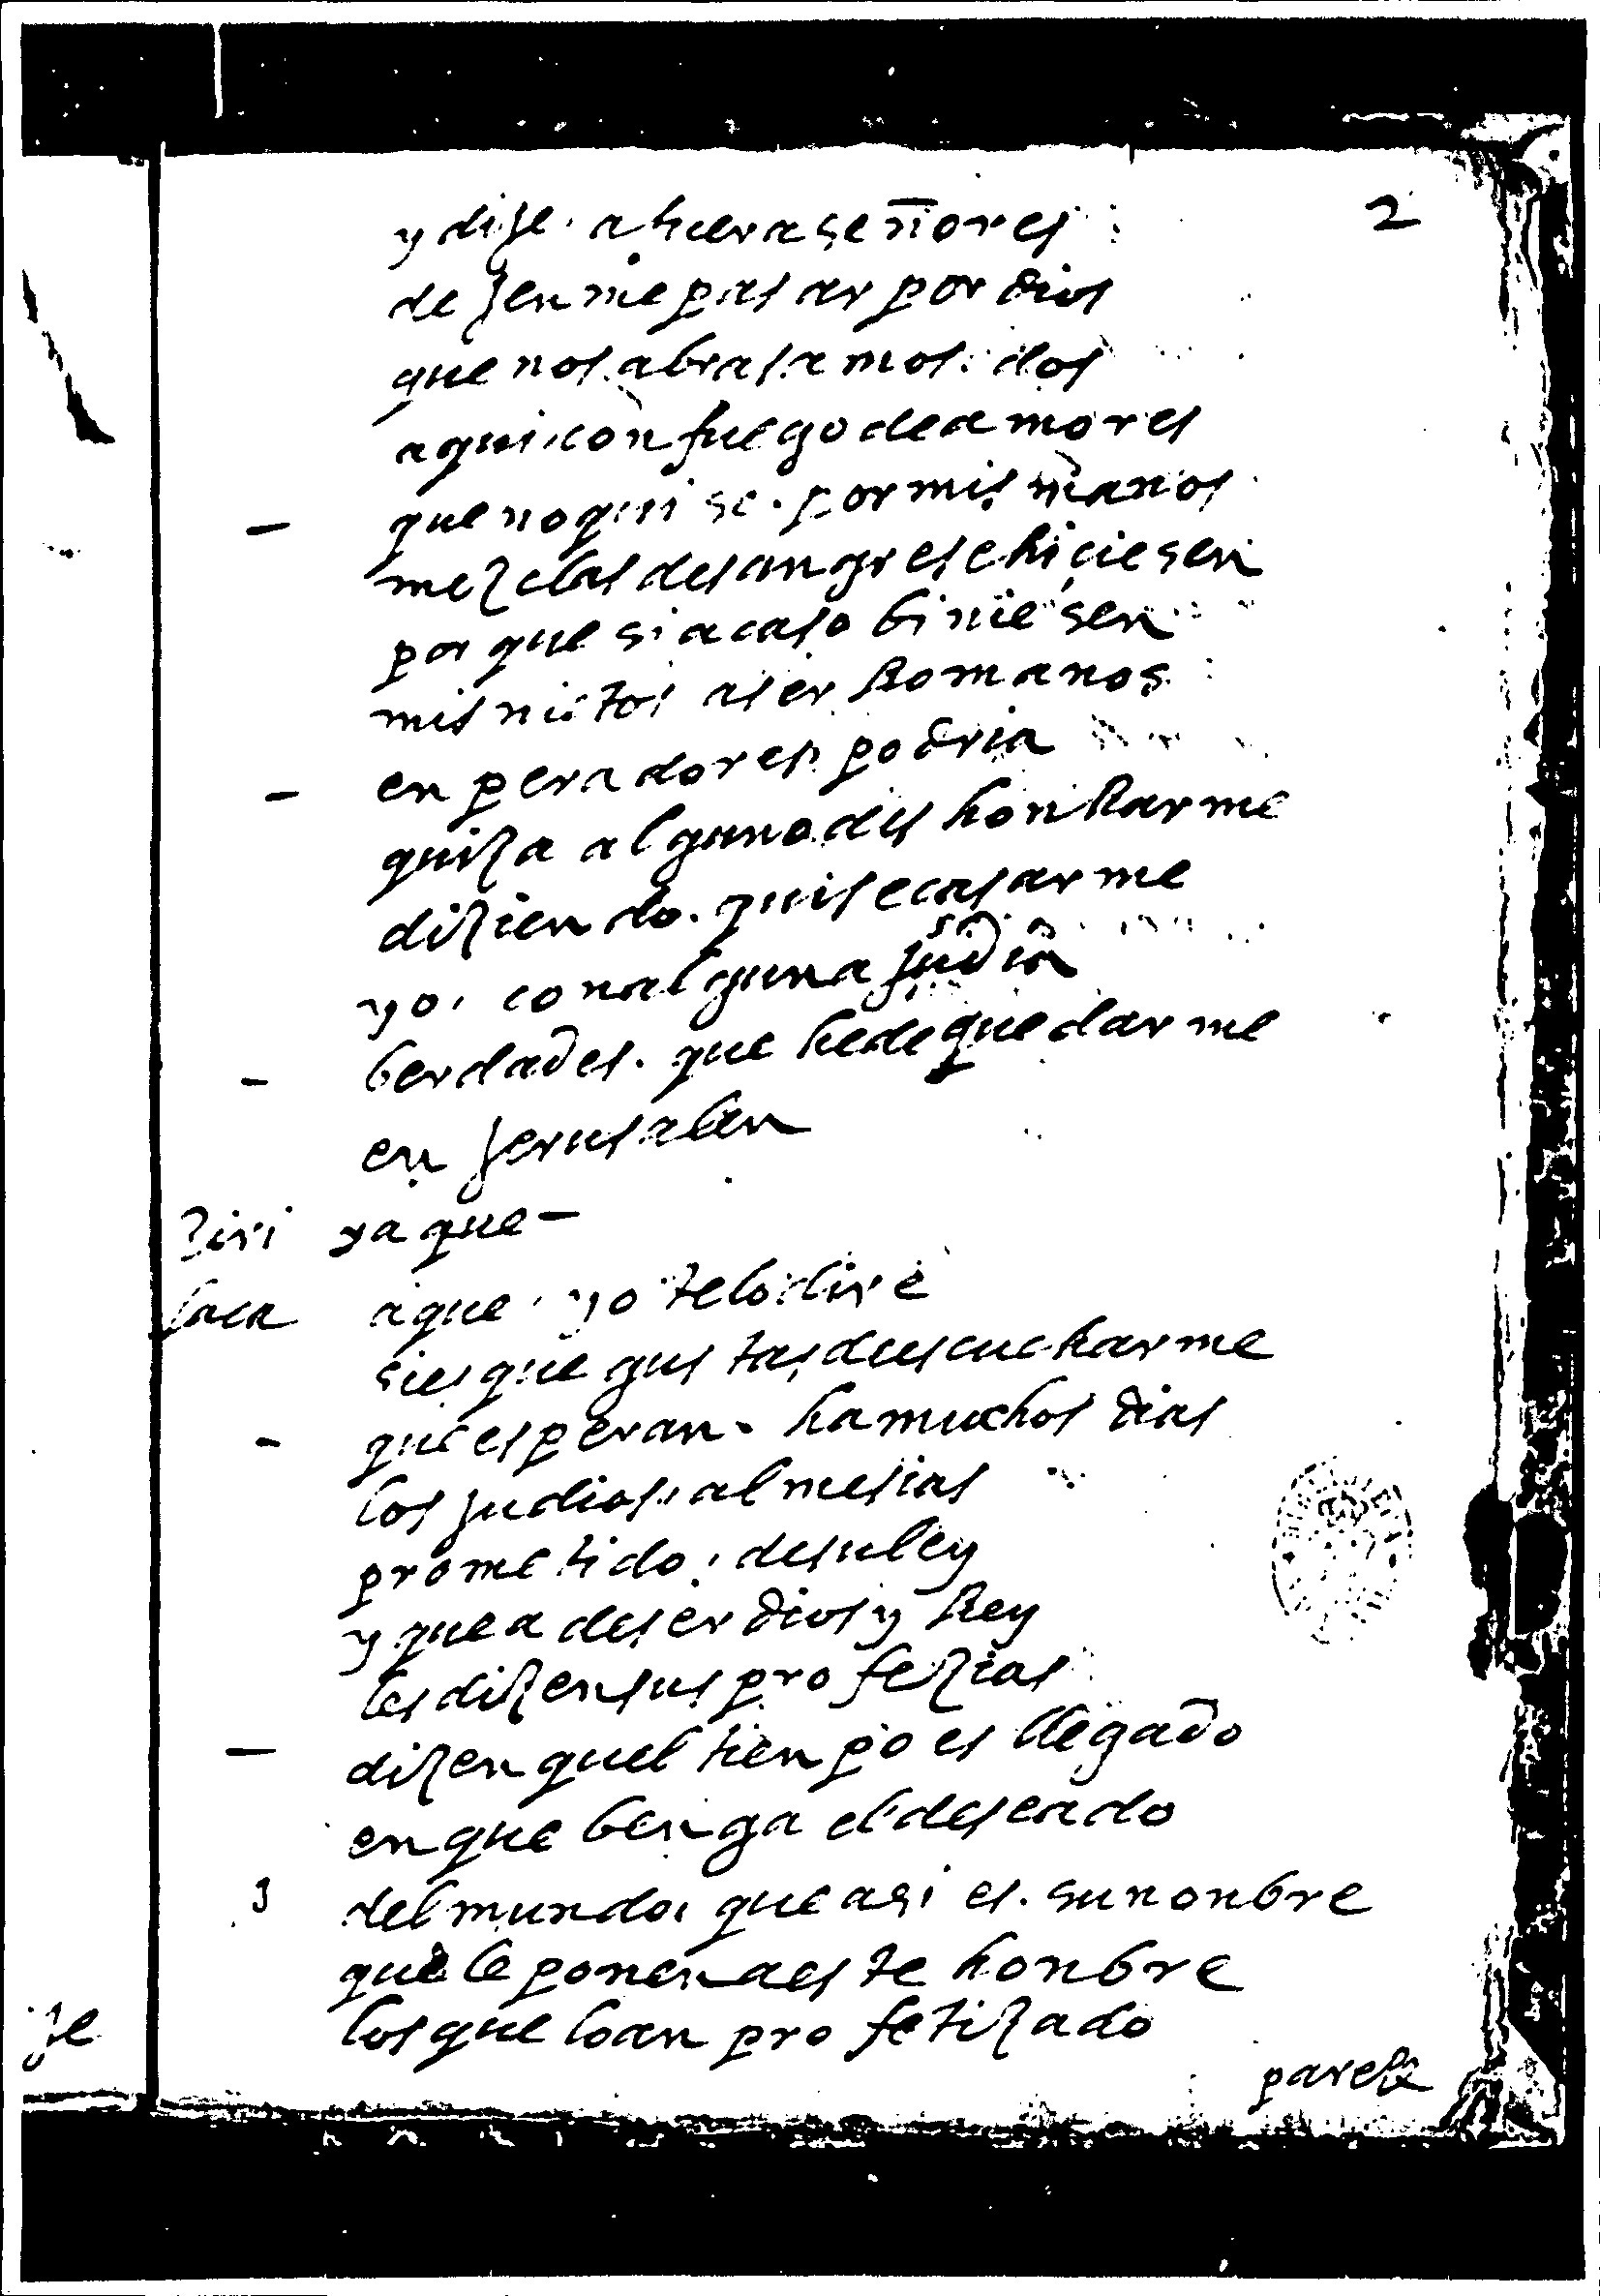 2
y dije. a fuera señores
dejenme pasar por dios
que nos abrasamos dos
aqui con fuego de amores
- que no quise. por mis manos
mezclas de sangre se hiciesen
por que si acaso biniesen
mis nietos a ser Romanos
- enperadores podria
quiza alguno deshonRarme
diziendo. quise casarme
yo. con alguna judia
- berdad es. que he de quedarme
en jerusalen
ya que -
a que. yo te lo dire
si es que gustas de escucharme
- que esperan. ha muchos dias
los judios. al mesias
prometido. de su ley
y que a de ser dios y Rey
les dizen sus profezias
- dizen quel tienpo es llegado
en que benga el deseado
del mundo. que asi es. su nonbre
que le ponen a este honbre
los que lo an profetizado
je